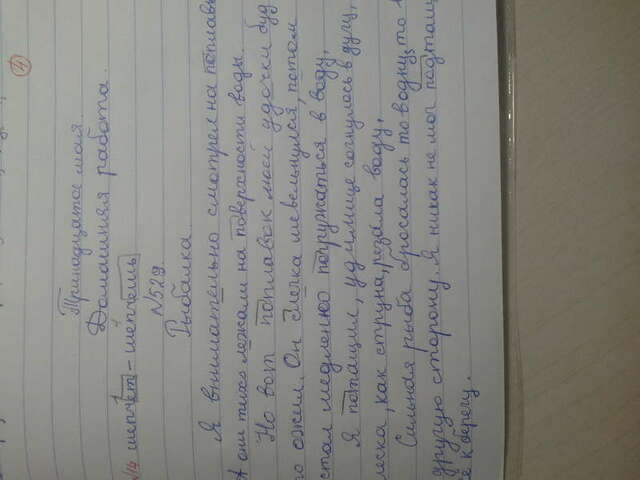 Тринадцатое мая.
Домашняя работа.
шепчет - шепчешь
№529
Рыбалка.
Я внимательно смотрел на поплавк
А они тихо лежали на поверхности воды.
Но вот поплавок моей удочки буд
то ожил. Он слегка шевельнулся, потом
стал медленно погружаться в воду.
Я потащил, удилище согнулось в дугу,
леска, как струна, резала воду.
Сильная рыба бросалась то в одну, то в
другую сторону. Я никак не мог подтащ
к берегу.